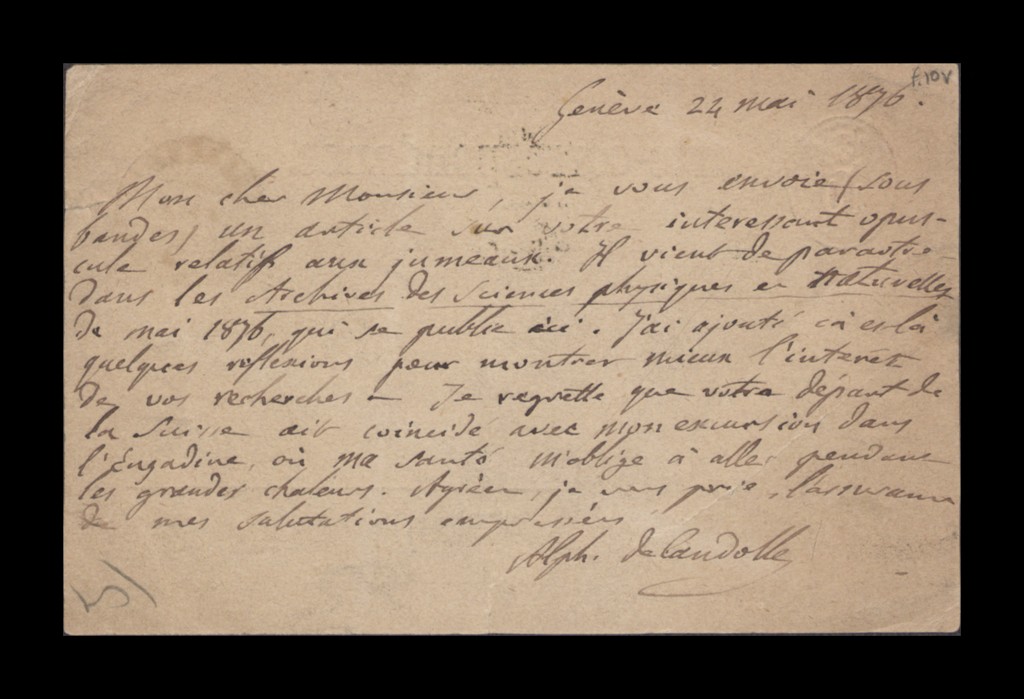 f.10v
Genève 24 mai 1876.
Mon cher Monsieur, je vous envoie (sous
bandes) un article sur votre interessant opus-
cule relatif aux jumeaux. Il vient de paraotre
dans les Archives des Sciences physiques et Naturelles
de mai 1876, qui se publie ici. J'ai ajouté cà et là
quelques reflexions pour montrer mieux l'interet
de vos recherches – Je regrette que votre départ de
la Suisse ait coincidé avec mon excursion dans
l'Engadine, où ma santé m'oblige à aller pendant
les grandes chaleurs. Agréez, je vous prie, l'assurance
de mes salutations empressées
Alph. deCandolle
5/